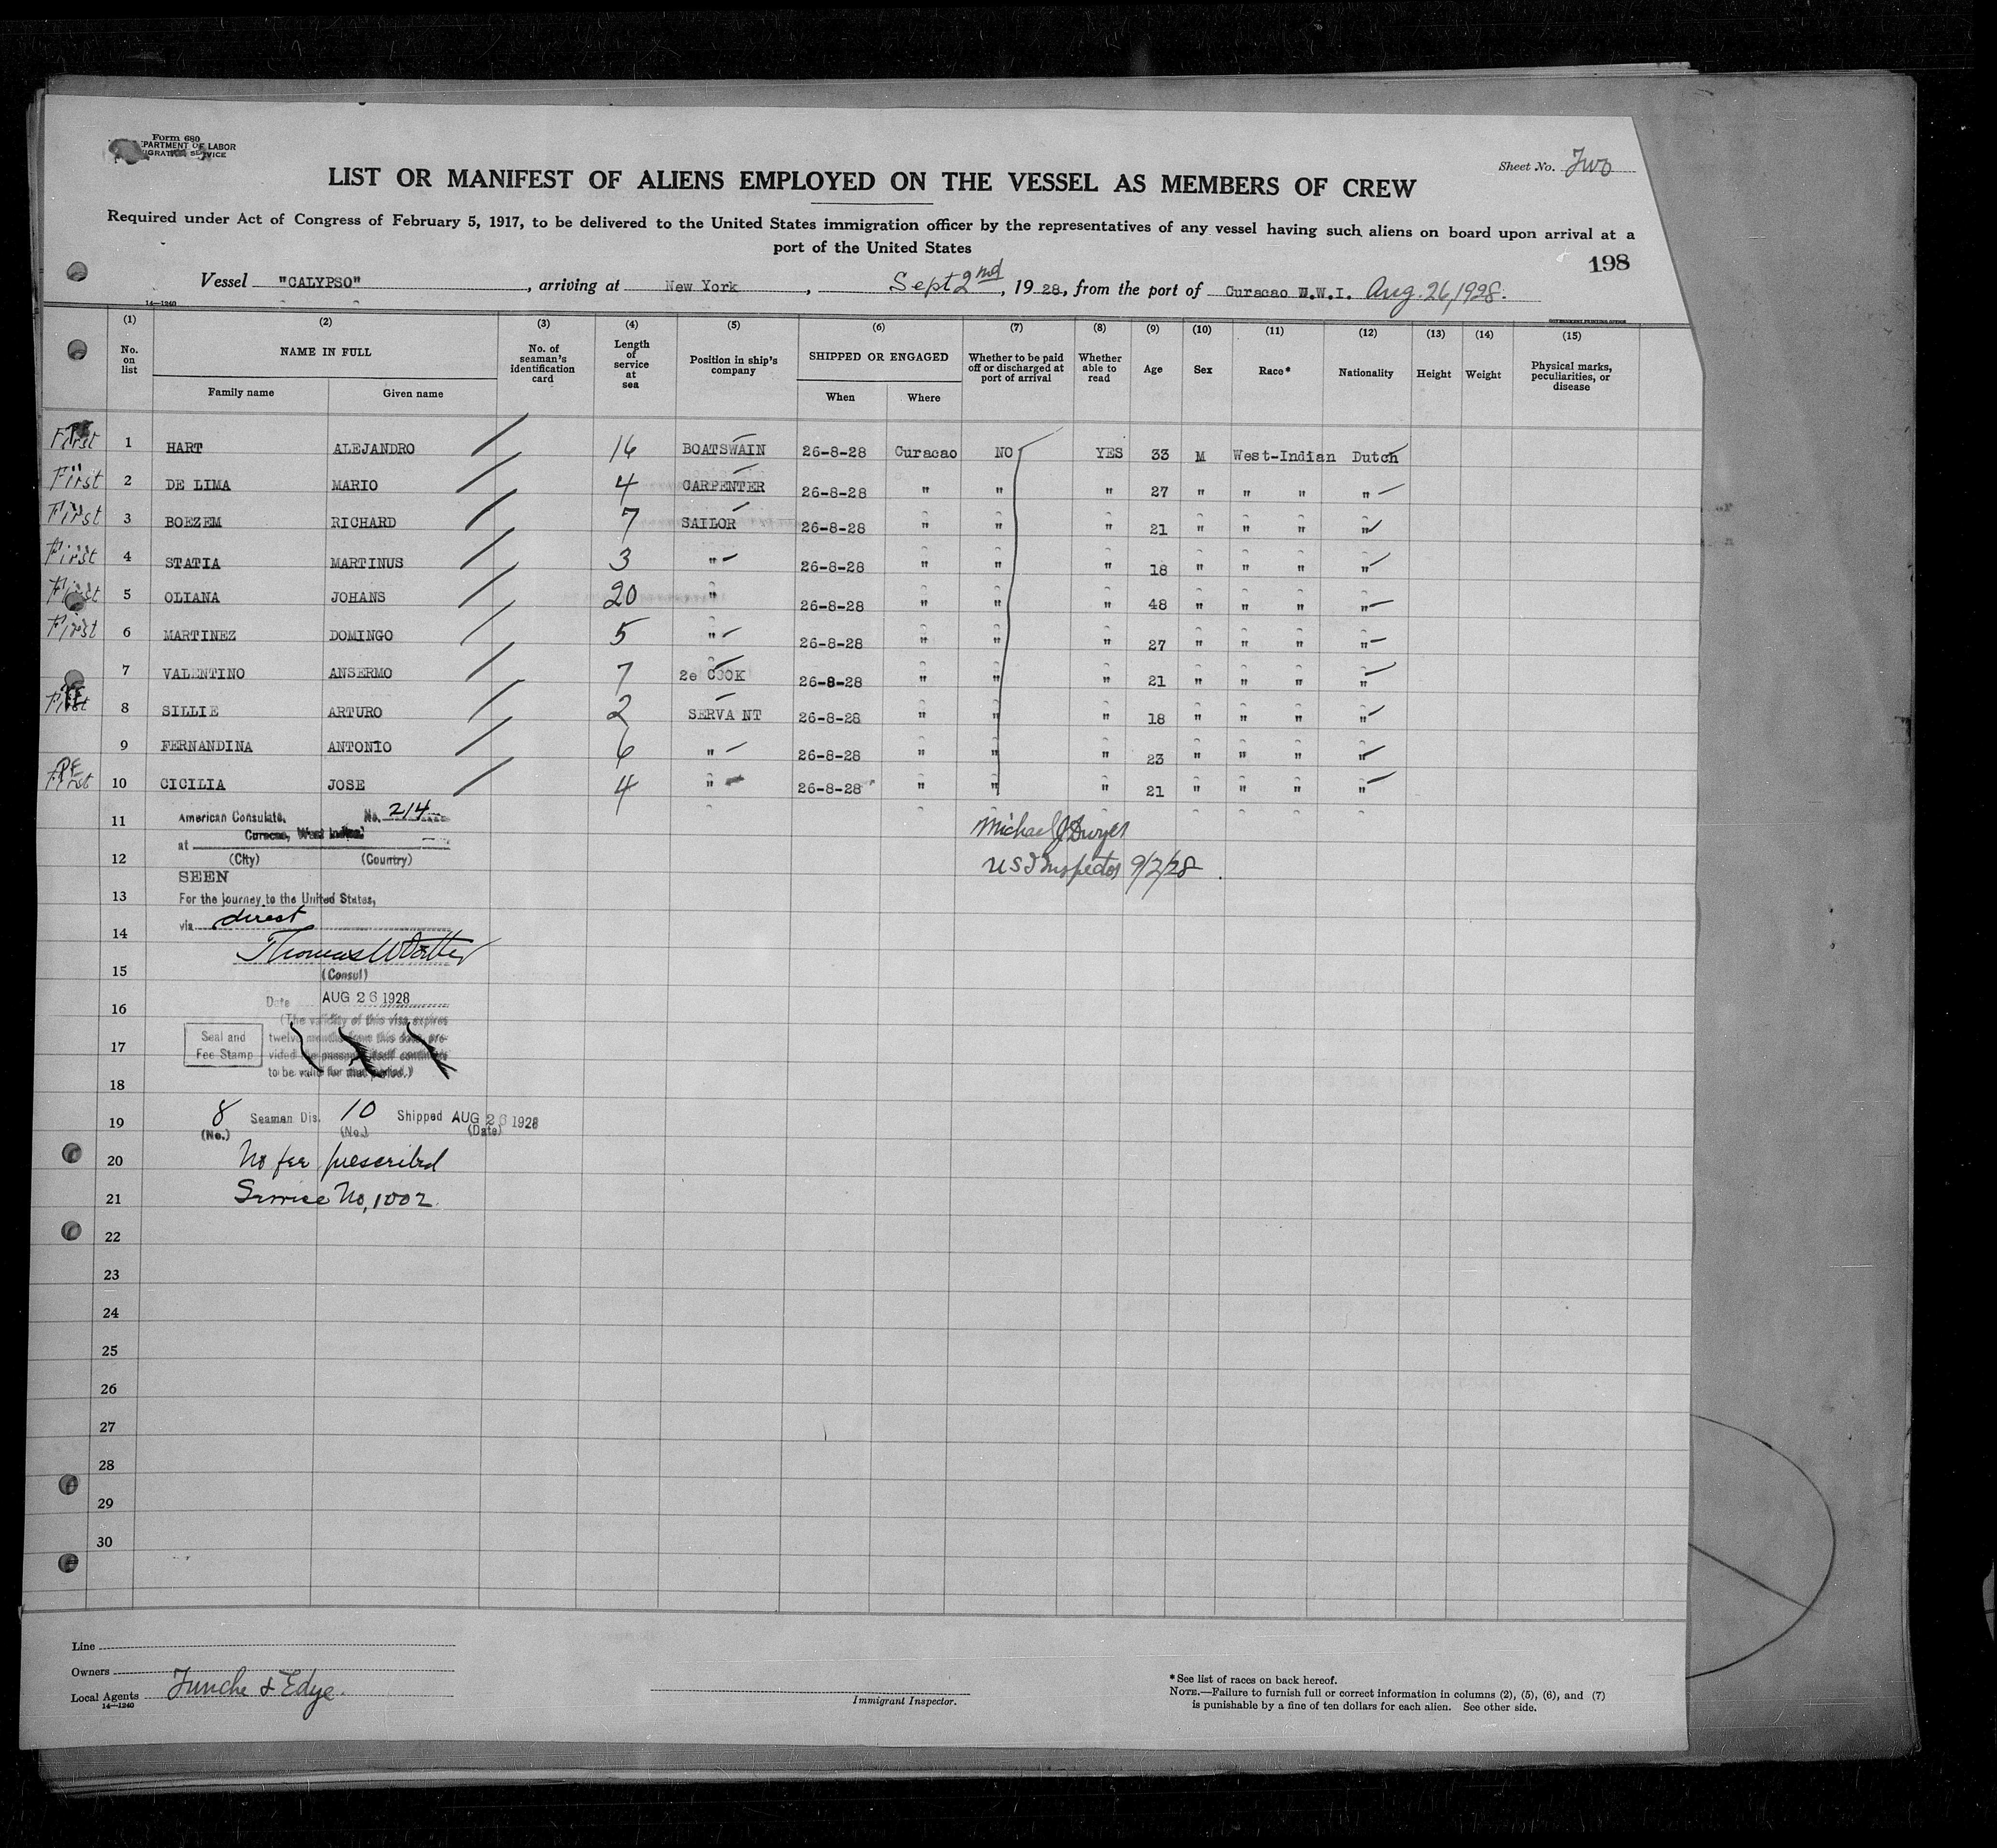 Form 680
DEPARTMENT OF LABOR
IMMIGRATION SERVICE
Sheet No. Two
LIST OR MANIFEST OF ALIENS EMPLOYED ON THE VESSEL AS MEMBERS OF CREW
Required under Act of Congress of February 5, 1917, to be delivered to the United States immigration officer by the representatives of any vessel having such aliens on board upon arrival at a
port of the United States
198
Vessel "CALYPSO", arriving at New York, Sept 2nd, 1928, from the port of Curacao W.I. Aug. 26, 1928.
14—1240
GOVERNMENT PRINTING OFFICE
(1) (2) (3) (4) (5) (6) (7) (8) (9) (10) (11) (12) (13) (14) (15)
No. on list NAME IN FULL No. of seaman's identification card Length of service at sea Position in ship's company SHIPPED OR ENGAGED Whether to be paid off or discharged at port of arrival Whether able to read Age Sex Race* Nationality Height Weight Physical marks, peculiarities, or disease
Family name Given name When Where
First 1 HART ALEJANDRO 16 BOATSWAIN 26-8-28 Curacao NO YES 33 M West-Indian Dutch
First 2 DE LIMA MARIO 4 CARPENTER 26-8-28 " " " 27 " " " "
First 3 BOEZEM RICHARD 7 SAILOR 26-8-28 " " " 21 " " " "
First 4 STATIA MARTINUS 3 " 26-8-28 " " " 18 " " " "
First 5 OLIANA JOHANS 20 " 26-8-28 " " " 48 " " " "
First 6 MARTINEZ DOMINGO 5 " 26-8-28 " " " 27 " " " "
7 VALENTINO ANSERMO 7 2e COOK 26-8-28 " " " 21 " " " "
First 8 SILLIE ARTURO 2 SERVANT 26-8-28 " " " 18 " " " "
9 FERNANDINA ANTONIO 6 " 26-8-28 " " " 23 " " " "
First 10 CICILIA JOSE 4 " 26-8-28 " " " 21 " " " "
11 American Consulate, No. 214
at Curacao, West Indies
Michael J Dwyer
12 (City) (Country)
US I Inspector 9/2/28
SEEN
13 For the journey to the United States,
via direct
14
Thomas W
15 (Consul)
16 Date AUG 26 1928
(The validity of this visa expires
17 Seal and Fee Stamp twelve months from this date, pro-
vided the passport itself continues
to be valid for that period.)
18
19 8 Seaman Dis. 10 Shipped AUG 26 1928
(No.) (No.) (Date)
20 No fee prescribed
21 Service No. 1002
22
23
24
25
26
27
28
29
30
Line
Owners
Local Agents Funche & Edye.
14—1240
Immigrant Inspector.
* See list of races on back hereof.
NOTE.—Failure to furnish full or correct information in columns (2), (5), (6), and (7)
is punishable by a fine of ten dollars for each alien. See other side.